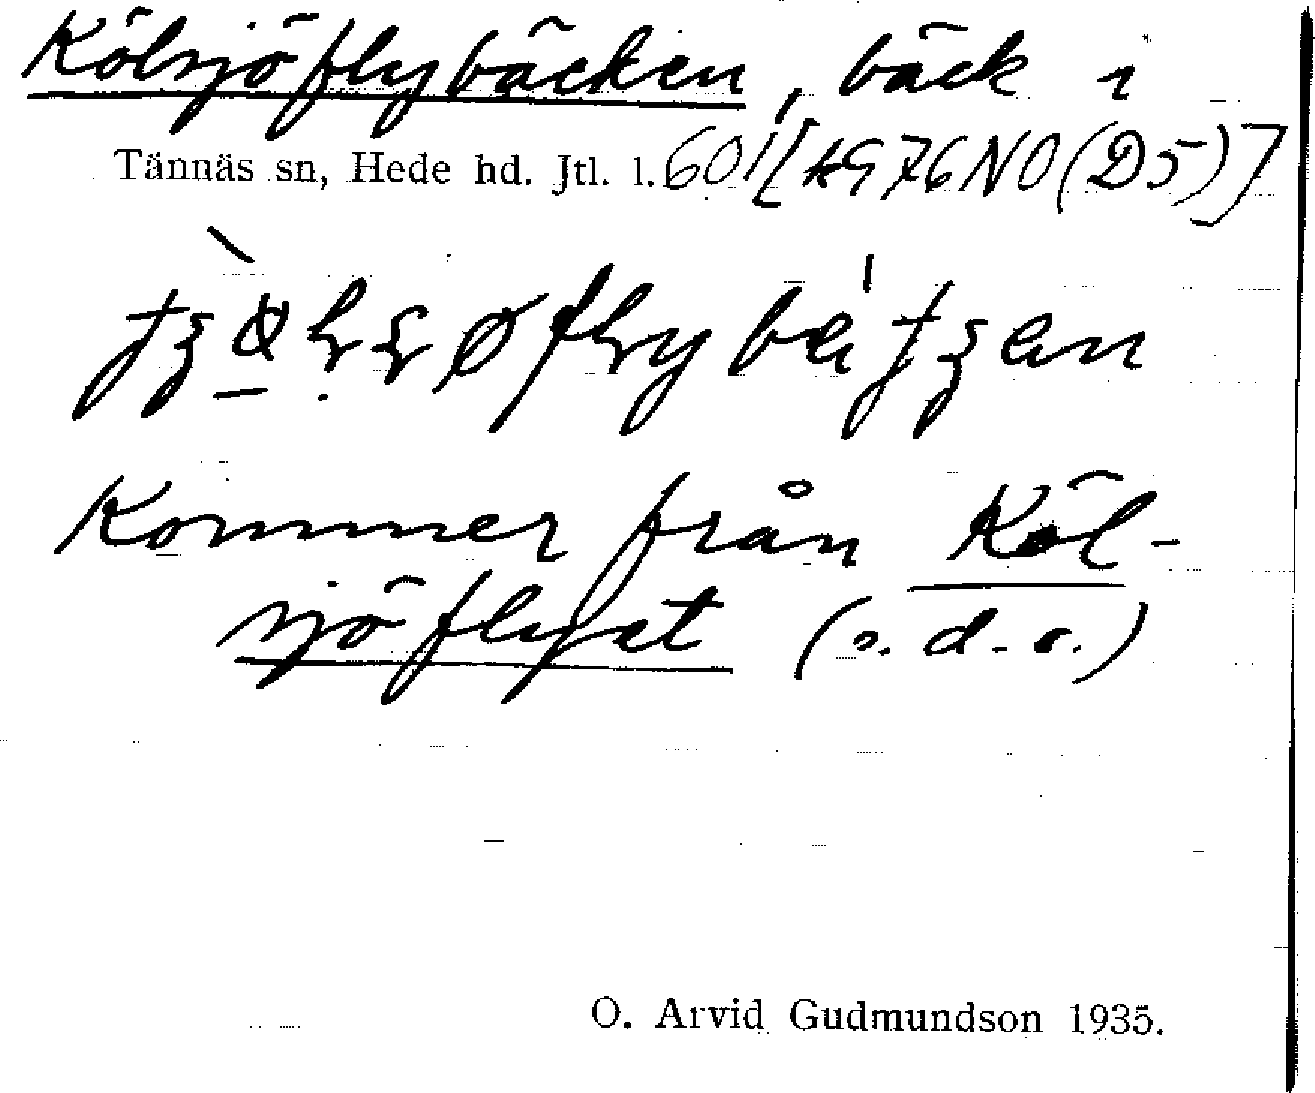 Kölsjöflybäcken, bäck i
Tännäs sn, Hede hd. Jtl. l. 601 [k976NO(D5)]
Kommer från Köl-
sjöflyet (s.d.o.)
O. Arvid Gudmundson 1935.